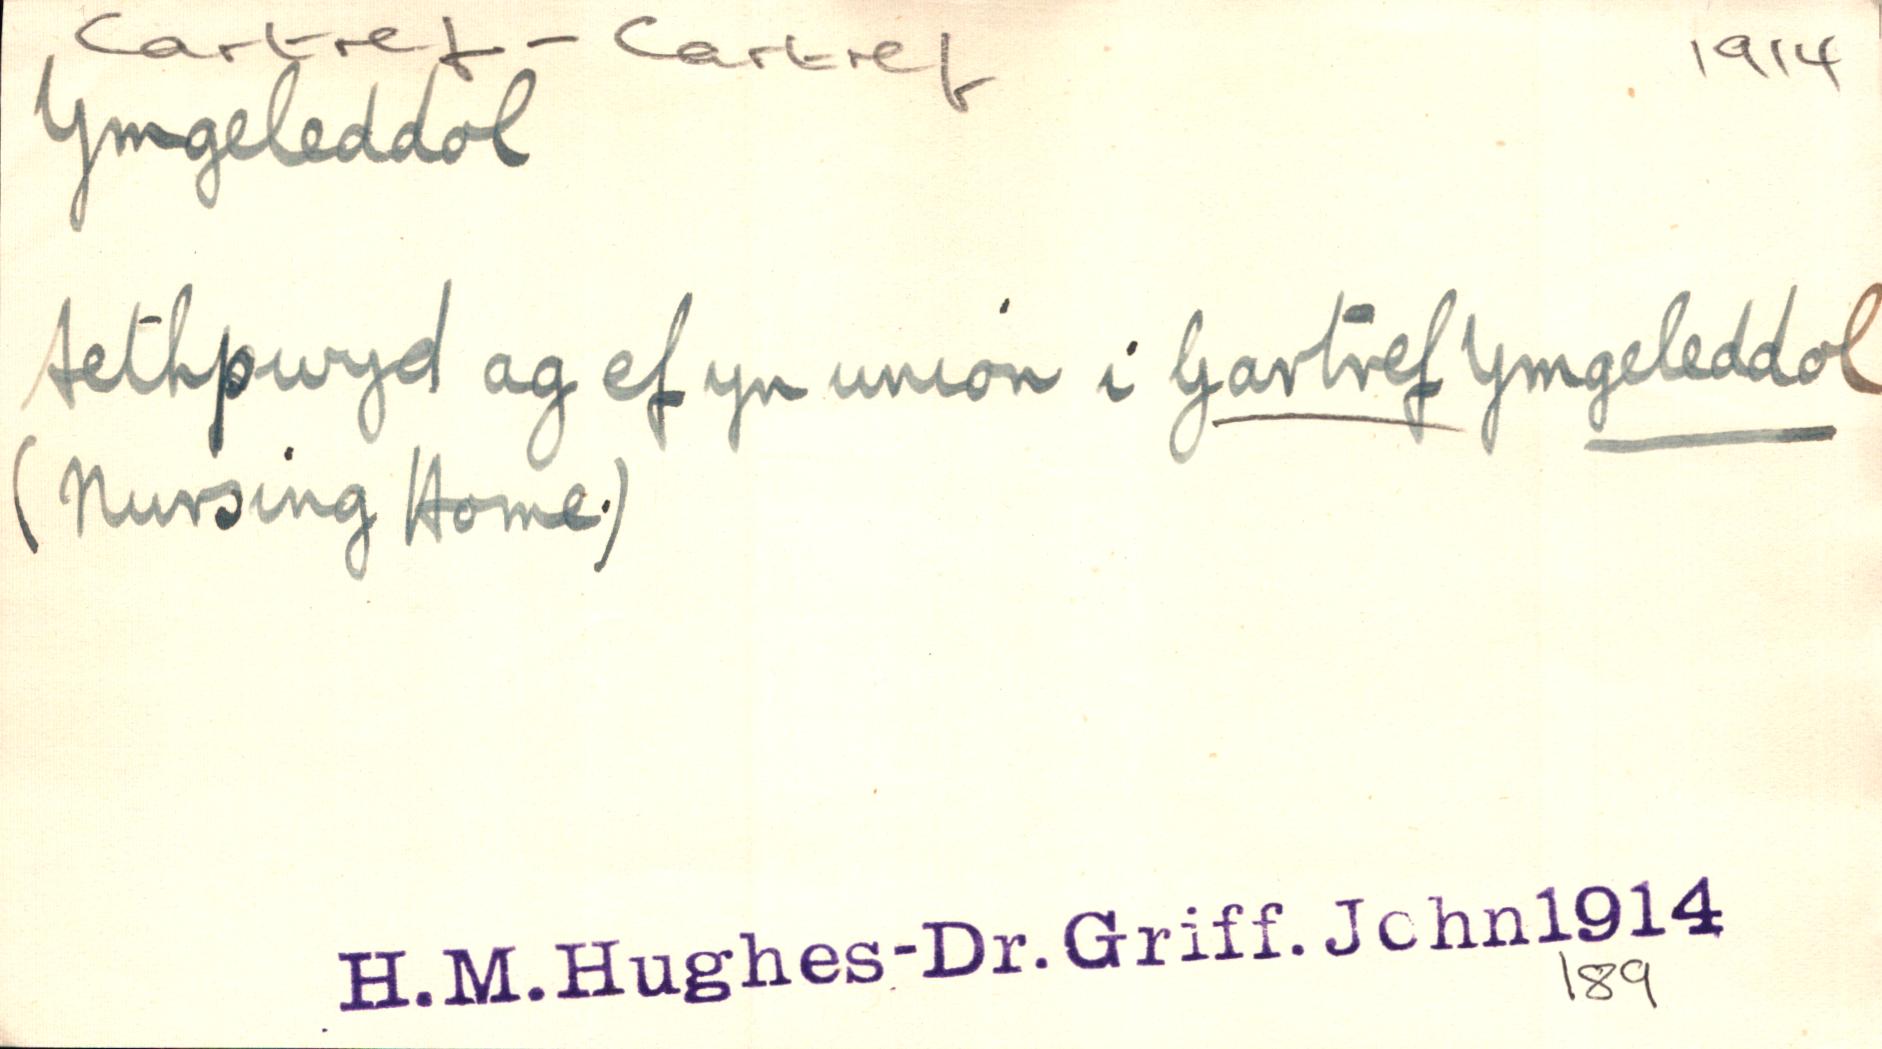 Cartref - Cartref 1914
Ymgeleddol
Aethpwyd ag ef yn union i Gartref Ymgeleddol
(Nursing Home.)
H.M.Hughes-Dr.Griff.John1914
189